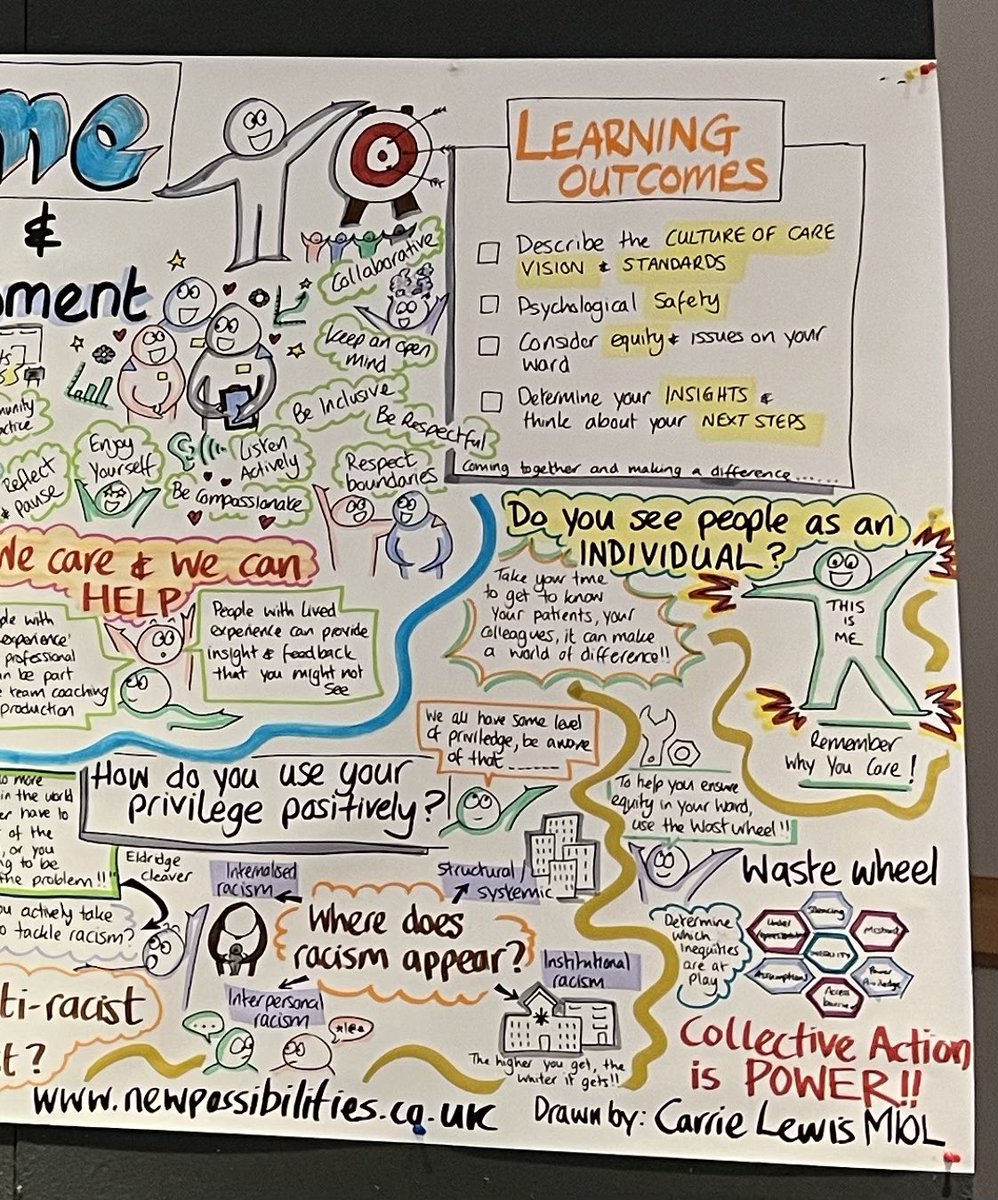 me
&
ment
LEARNING
OUTCOMES
Describe the CULTURE OF CARE
VISION & STANDARDS
Psychological Safety
Consider equity & issues on your
ward
Determine your INSIGHTS &
think about your NEXT STEPS
Coming together and making a difference......
Collaborative
Keep an open
mind
Be Inclusive
Be Respectful
Respect
boundaries
Listen
Actively
Be Compassionate
Enjoy
Yourself
Reflect
& Pause
We care & we can
HELP
People with lived
experience can provide
insight & feedback
that you might not
See
experience'
professional
n be part
team coaching
production
Do you see people as an
INDIVIDUAL?
Take your time
to get to know
your patients, your
colleagues, it can make
a world of difference!!
THIS
IS
ME
Remember
Why You Care!
We all have some level
of priviledge, be aware
of that
How do you use your
privilege positively?
To help you ensure
equity in your ward,
use the Wast wheel!!
more
in the world
er have to
of the
, or you
ng to be
the problem!!"
Eldridge
cleaver
ou actively take
to tackle racism?
ti-racist
?
Internalised
racism
Structural/
systemic
Where does
racism appear?
Interpersonal
racism
Institutional
racism
*!@*
The higher you get, the
whiter it gets!!
Waste wheel
Determine
which
inequities
are at
play
Silencing
INEQUITY
Assumptions
Power
Access
Collective Action
is POWER!!
www.newpossibilities.co.uk
Drawn by: Carrie Lewis MIOL